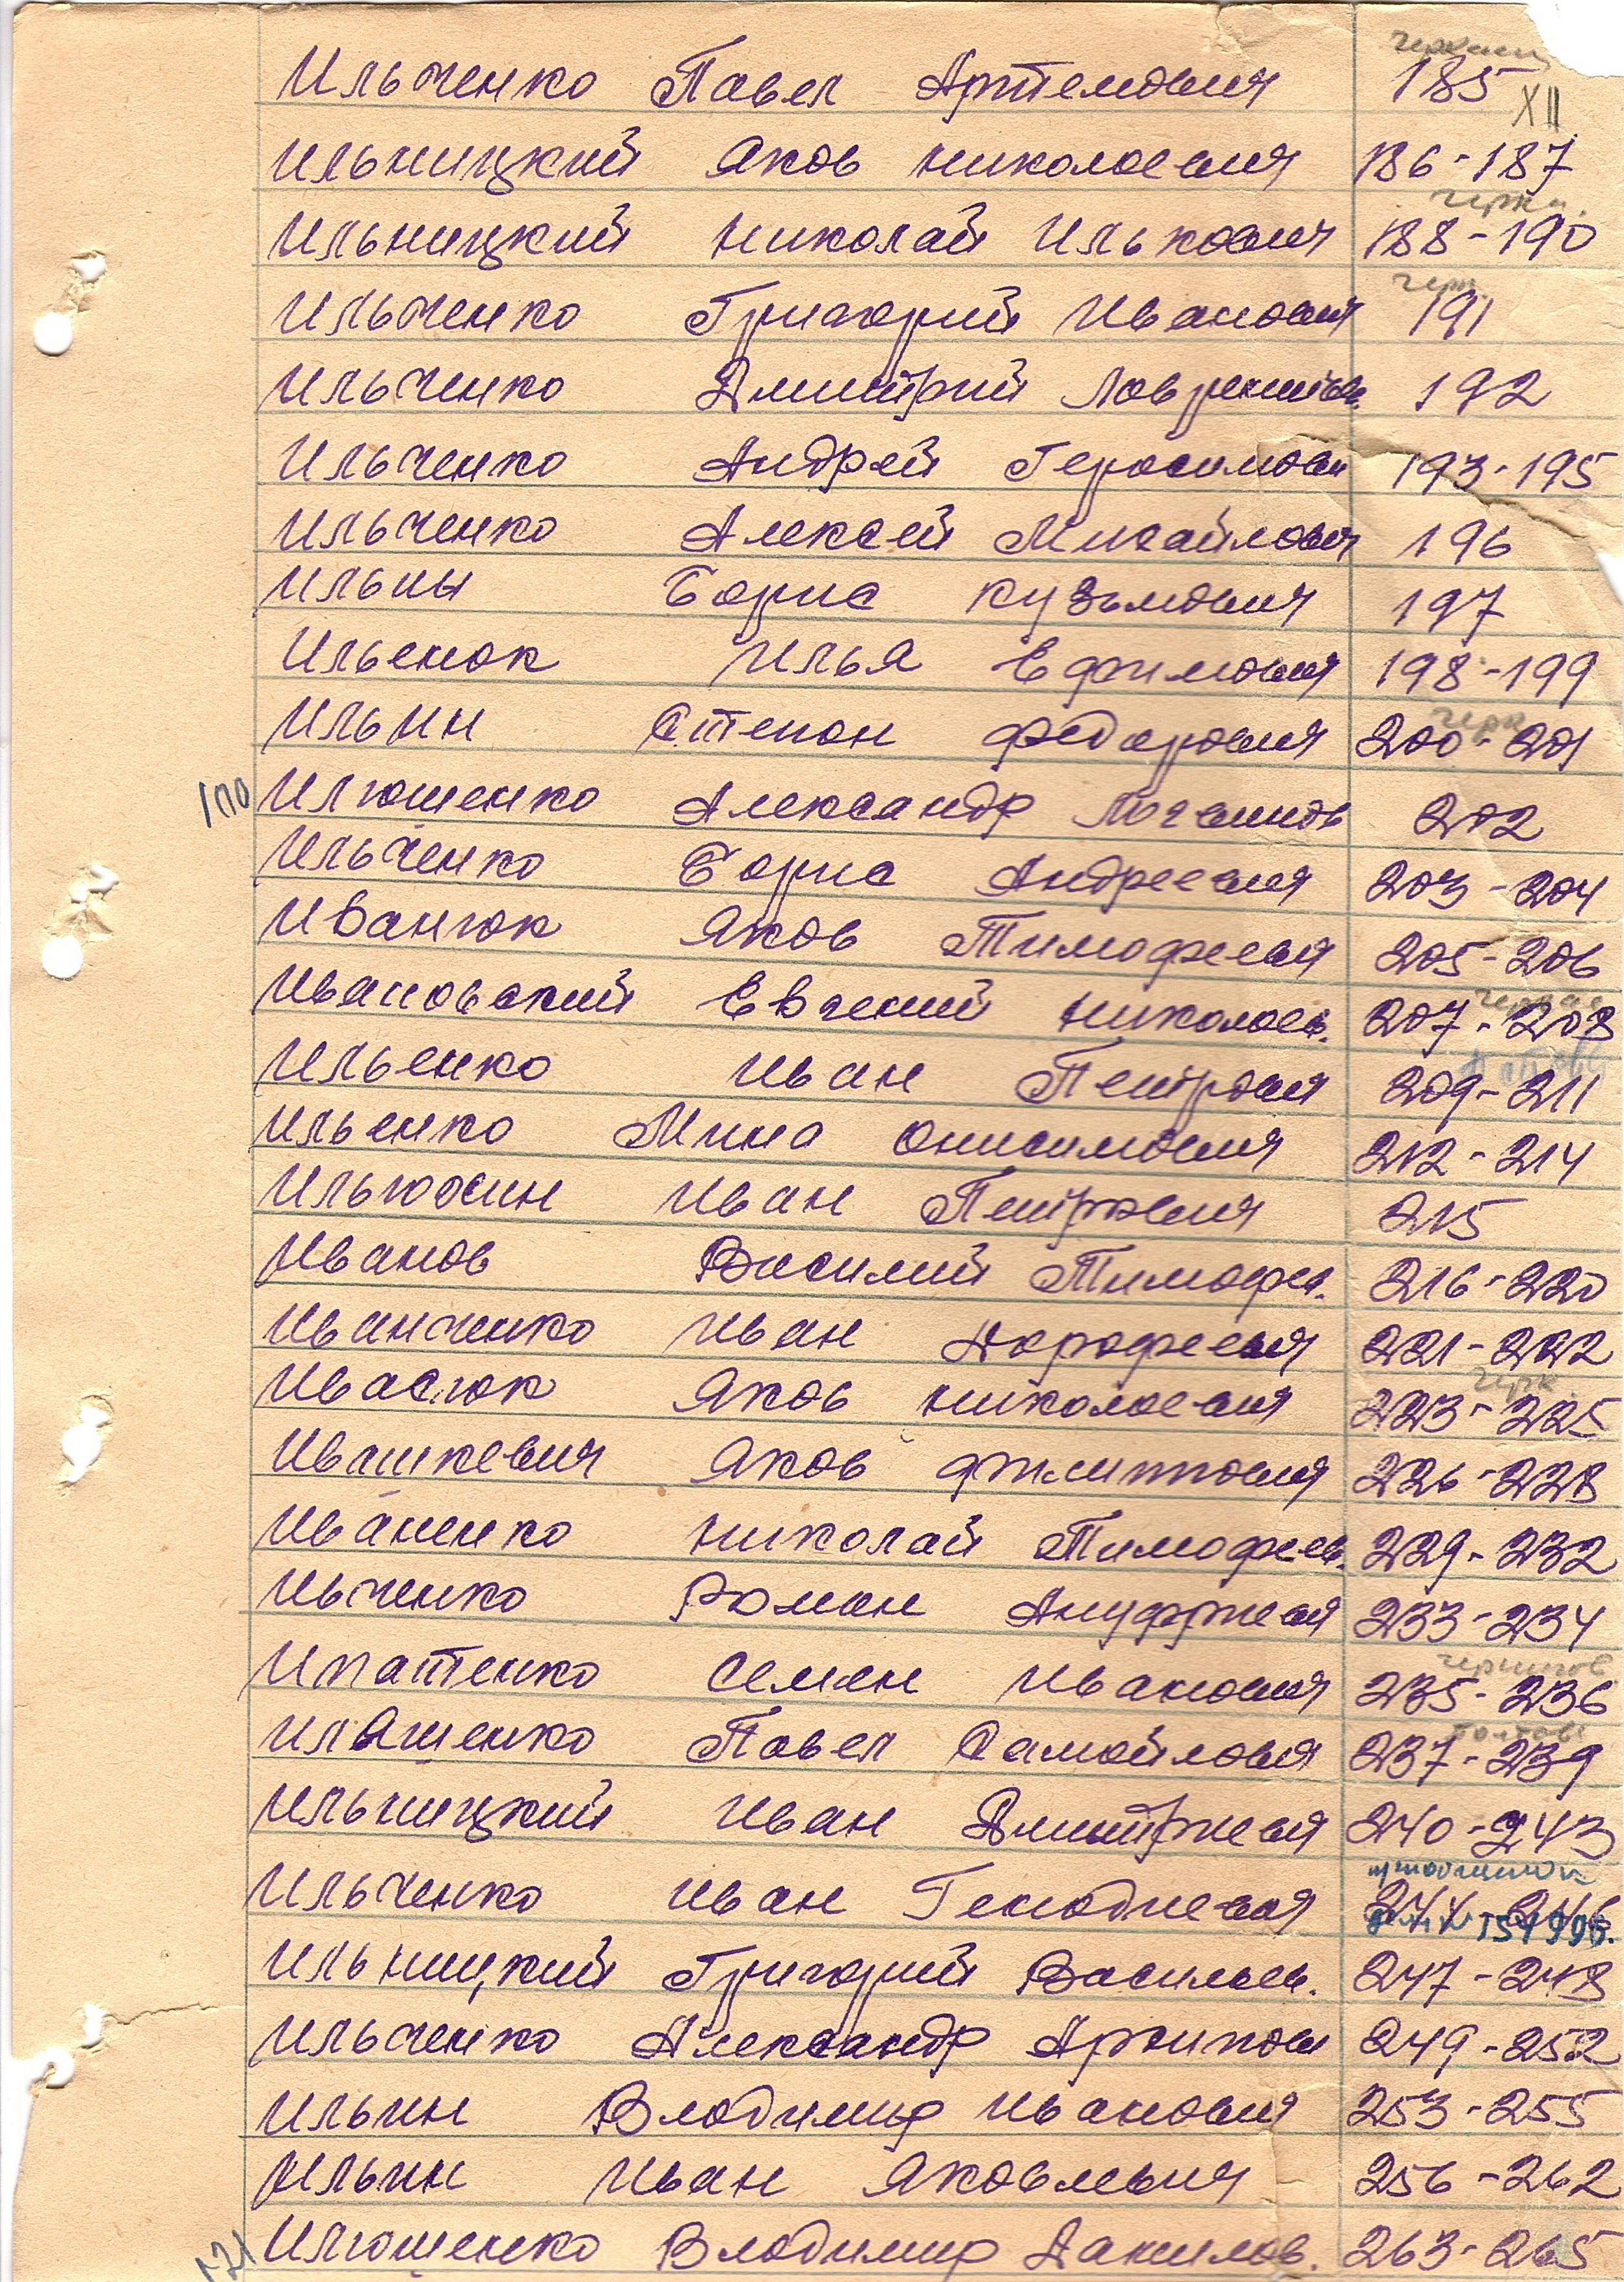 Ильченко Павел Артемович 185
XII
Ильницкий Яков Николаевич 186-187
черк.
Ильницкий Николай Илькович 188-190
черк.
Ильченко Григорий Иванович 191
Ильченко Дмитрий Лаврентьев. 192
Ильченко Андрей Герасимович 193-195
Ильченко Алексей Михайлович 196
Ильиы Борис Кузьмович 197
Ильенок Илья Ефимович 198-199
черк
Ильин Степан Федорович 200-201
Илюшенко Александр 202
Ильченко Борис Андреевич 203-204
Иванюк Яков Тимофеевич 205-206
Ивановский Евгений Николаев. 207-208
Ильенко Иван Петрович 209-211
Ильенко Мина Онисимович 212-214
Ильюхин Иван Петрович 215
Иванов Василий Тимофе. 216-220
Иванченко Иван Дорофеевич 221-222
черк
Ивасюк Яков Николаевич 223-225
Ивашкевич Яков Филиппович 226-228
Иваненко Николай Тимофеев. 229-232
Ивченко Роман Ануфриевич 233-234
чернигов
Ипатенко Семен Иванович 235-236
полтавс
Ильяшенко Павел Самойлович 237-239
Ильницкий Иван Дмитриевич 240-243
Ильченко Иван Генадиевич 244-246
Ильницкий Григорий Васильев. 247-248
Ильченко Александр Архипович 249-252
Ильин Владимир Иванович 253-255
Ильин Иван Яковлевич 256-262
Илюшенко Владимир Данилов. 263-265